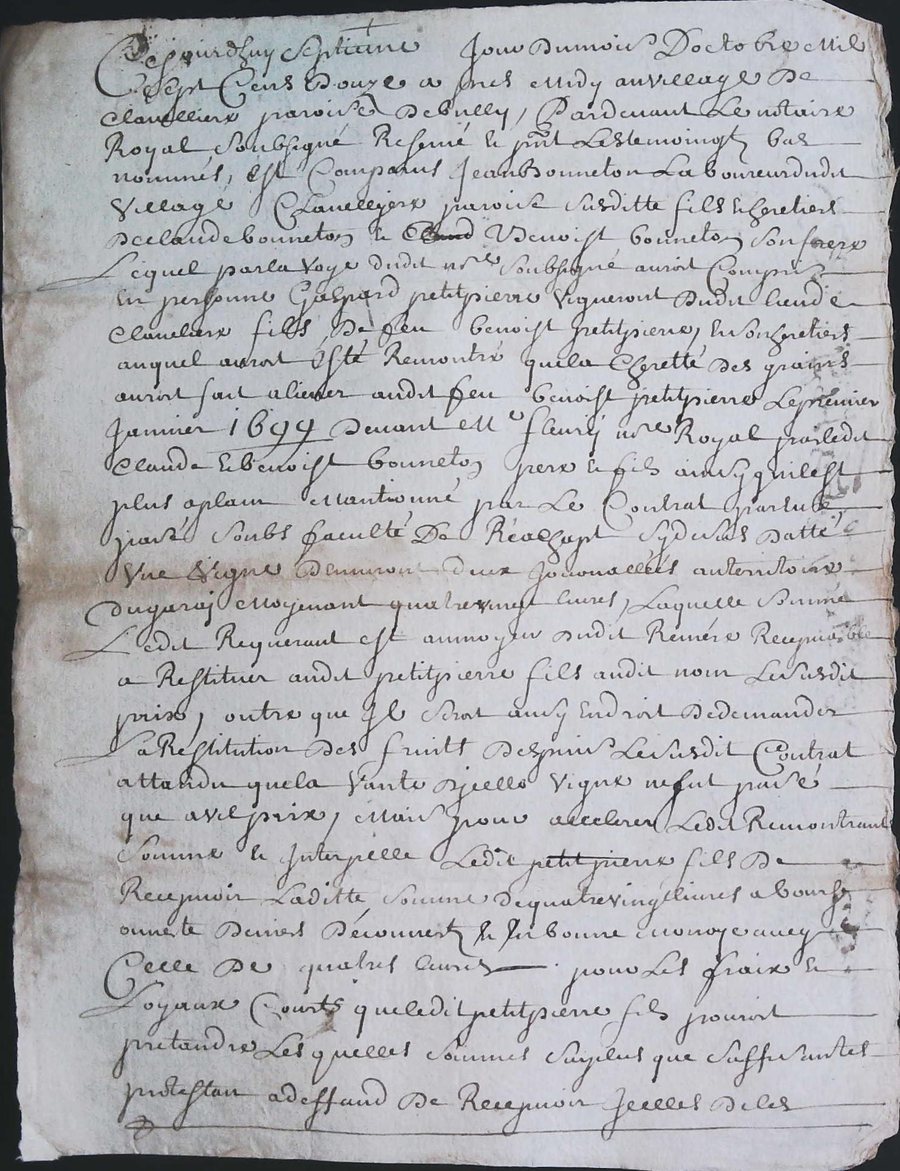 Cejourdhuy Septieme Jour Dumois Doctobre Mil
Sept Cens Douze a pres Midy auvillage De
Clavelliere paroisse De bully, Pardevant Le notaire
Royal Soubsigné Reservé et pnt Lestemoingt bas
nommés, Est Comparus Jean Bonneton Laboureurdudit
Village Clavelliere paroise Susditte fils Eheretiers
Declaude bonneton et Benoist bonneton Son frere
Lequel parla voye dudit nore Soubsigné auroit Compris
En personne Gaspard petitpierre Vigneront Dudit lieude
Claveliere fils De feu benoist petitpierre, Enson heretiers
auquel auroit Esté Remontré quela Cheretté Des grains
auroit fait aliener audit feu benoist petitpierre Lepremier
Janvier 1699 Devant Me fleury nore Royal parledit
Claude Ebenoist bonneton pere et fils ainsy quilest
plus aplain Mantionné par Le Contrat pareulx
passé Soubs faculté De Réachapt Sydesus Datté
Une Vigne Denviront deux Journallées auterritoire
Dugaray Moyenant quatrevingt livres, Laquelle Somme
Ledit Requerant est aumoyen Dudit Reméré Recepvable
a Restituer audit petitpierre fils audit nom Lesusdit
prix, outre que Jl Seroit ausy Endroit Dedemander
La Restitution Des fruits Despuis Lesusdit Contrat
attandu quela Vante Djcelle Vigne nefut passé
que a vil prix, Mais pour accelerer Ledit Remontrant
Somme et Jnterpelle Ledit petitpierre fils De
Recepvoir Laditte Somme Dequatrevingt livres a bourse
ouverte Deniers Découvert et En bonne Monoye avecq
Celle De quatres livres pour Les fraix et
Loyaux Couts queledit petitpierre fils pouroit
pretandre Les quelles Sommes Surplus que Suffisantes
protestan adeffaud De Recepvoir Jcelles Deles